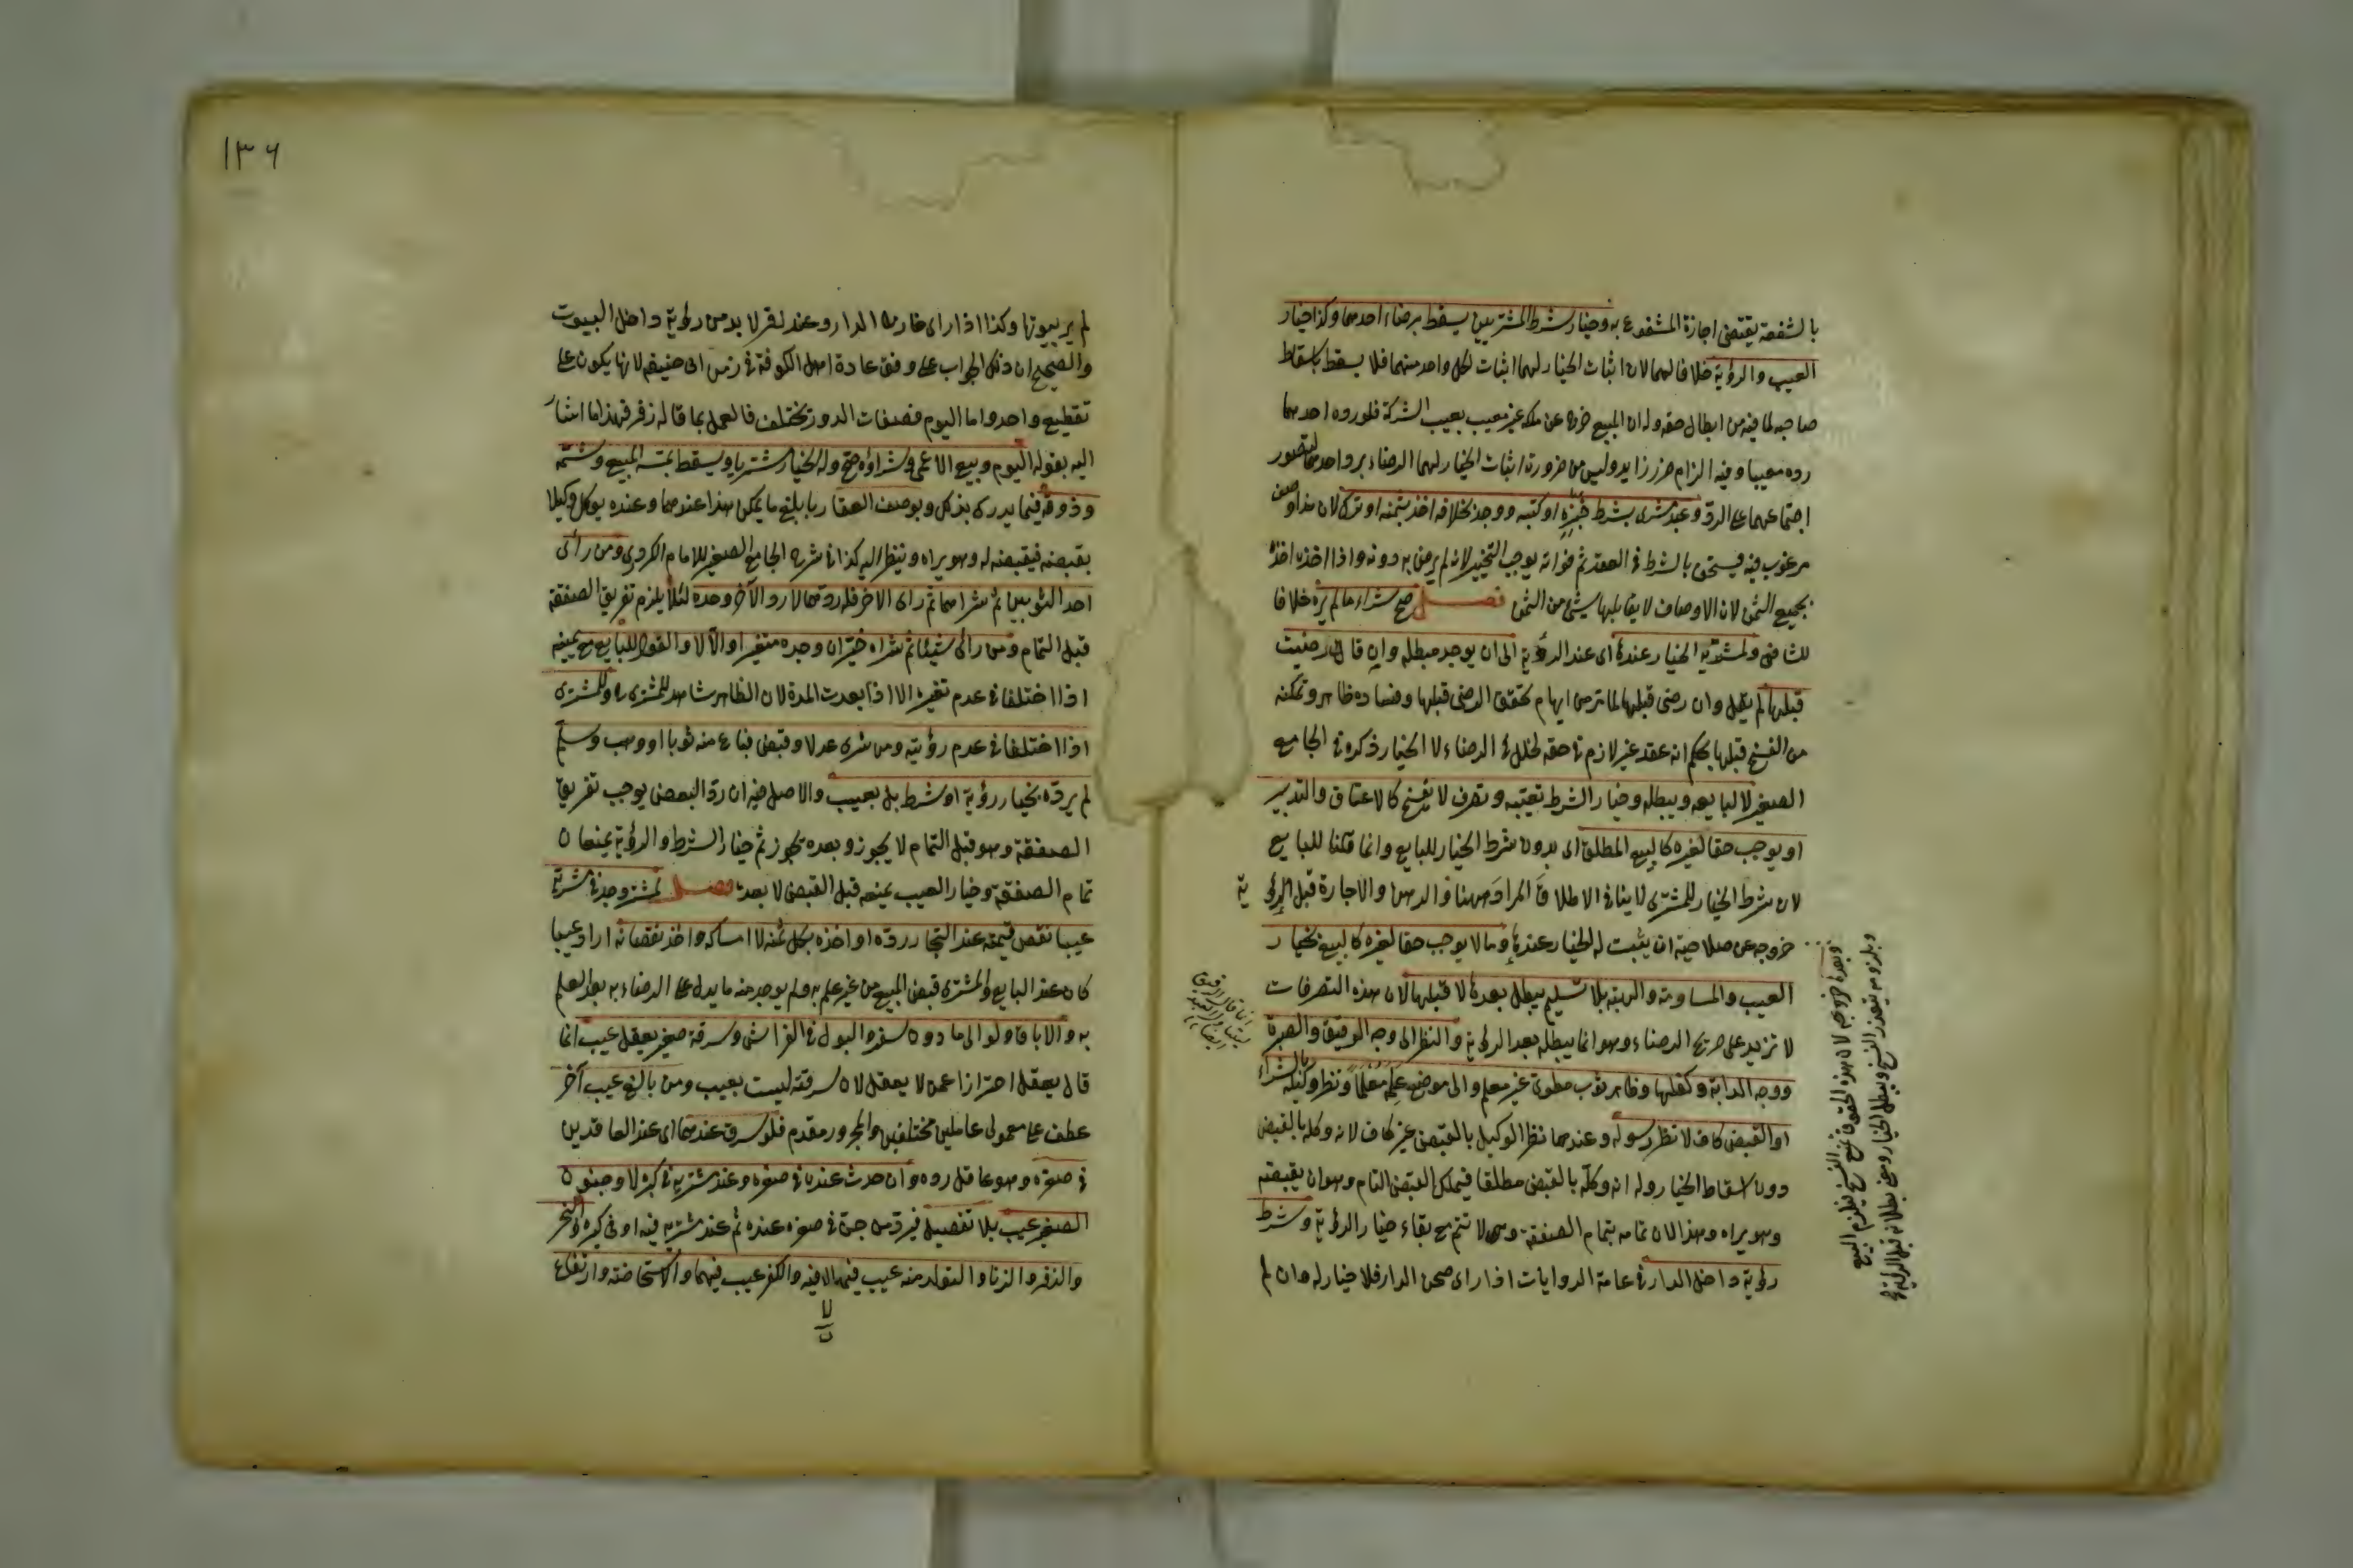 بالشفعة يقتضى اجازة المشفوع به وخيار شرط المشتريين يسقط برضاء احدهما وكذا خيار
العيب والرؤية خلافا لهما لان اثبات الخيار لهما اثبات لكل واحد منهما فلا يسقط باسقاط
صاحبه لما فيه من ابطال حقه وله ان المبيع خرج عن ملكه غير معيب بعيب الشركة فلو رده احدهما
رده معيبا وفيه الزام ضرر زايد وليس من ضرورة اثبات الخيار لهما الرضاء برد احدهما لتصور
اجتماعهما على الرد وعبد مشرى بشرط خبزه او كتبه ووجد بخلافه اخذ بثمنه او ترك لان هذا وصف
مرغوب فيه فيستحق بالشرط فى العقد ثم فواته يوجب التخيير لانه لم يرض به دونه واذا اخذه اخذه
بجميع الثمن لان الاوصاف لا يقابلها شئ من الثمن فصل صح شراء ما لم يره خلافا
للشافعى ولمشتريه الخيار عندها اى عند الرؤية الى ان يوجد مبطله وان قال رضيت
قبلها لم يقل وان رضى قبلها لما تر من ايهام تحقق الرضى قبلها وفساده ظاهر وتمكنه
من الفسخ قبلها بحكم انه عقد غير لازم فى حقه لخلل فى الرضاء لا الخيار ذكره فى الجامع
الصغير لا لبايعه ويبطله وخيار الشرط تعيبه وتصرف لا يفسخ كالاعتاق والتدبير
او يوجب حقا لغيره كالبيع المطلق اى بدون شرط الخيار للبايع وانما قلنا للبايع
لان شرط الخيار للمشترى لا ينافى الاطلاق المراد ههنا والرهن والاجارة قبل الرؤية
خروجه عن صلاحية ان يثبت له الخيار عندها وما لا يوجب حقا لغيره كالبيع بخيار
العيب والمساومة والهبة بلا تسليم يبطل بعدها لا قبلها لان هذه التصرفات
لا تزيد على صريح الرضاء وهو انما يبطله بعد الرؤية والنظر الى وجه الرقيق والصبرة
ووجه الدابة وكفلها وظاهر ثوب مطوى غير معلم والى موضع علمه معلما ونظر وكيله بالشراء
او القبض كاف لا نظر رسوله وعندهما نظر الوكيل بالقبض غير كاف لانه وكله بالقبض
دون اسقاط الخيار وله انه وكله بالقبض مطلقا فيملك القبض التام وهو ان يقبضه
وهو يراه وهذا لان تمامه بتمام الصفقة وهى لا تتم مع بقاء خيار الرؤية وشرط
رؤية داخل الدار فى عامة الروايات اذا راى صحن الدار فلا خيار له وان لم
وبعده خروجه لان هذه الحقوق تمنع الفسخ فيلزم البيع
وبلزومه يتعذر الفسخ ويبطل الخيار
١٣٦
لم ير بيوتها وكذا اذا راى خارج الدار وعند زفر لا بد من رؤية داخل البيوت
والصحيح ان ذلك الجواب على وفق عادة اهل الكوفة فى زمن ابى حنيفة لانها يكون على
تقطيع واحد واما اليوم فصفات الدور تختلف فالعمل بما قاله زفر فهذا ما اشار
اليه بقوله اليوم وبيع الاعمى وشراؤه صح وله الخيار مشتريا ويسقط بمسه المبيع وشمه
وذوقه فيما يدرك بذلك وبوصف العقار بابلغ ما يمكن هذا عندهما وعنده يوكل وكيلا
بقبضه فيقبضه له وهو يراه وينظر اليه كذا فى شرح الجامع الصغير للامام الكردرى ومن رأى
احد الثوبين ثم شراهما ثم راى الاخر فله ردهما لا رد الآخر وحده لئلا يلزم تفريق الصفقة
قبل التمام ومن رأى شيئا ثم شراه خير ان وجده متغيرا والا لا والقول للبايع مع يمينه
اذا اختلفا فى عدم تغيره الا اذا بعدت المدة لان الظاهر شاهد للمشترى وللمشترى
اذا اختلفا فى عدم رؤيته ومن شرى عدلا وقبض فباع منه ثوبا او وهب وسلم
لم يرده بخيار رؤية او شرط بل بعيب والاصل فيه ان رد البعض يوجب تفريق
الصفقة وهو قبل التمام لا يجوز وبعده يجوز ثم خيار الشرط والرؤية يمنعان
تمام الصفقة وخيار العيب يمنعه قبل القبض لا بعده فصل لمشتر وجد فى مشريه
عيبا نقص قيمته عند التجار رده او اخذه بكل ثمنه لا امساكه واخذ نقصانه اراد عيبا
كان عند البايع والمشترى قبض المبيع من غير علم به ولم يوجد منه ما يدل على الرضاء به بعد العلم
به والاباق ولو الى ما دون سفر والبول فى الفراش وسرقة صغير يعقل عيب انما
قال يعقل احترازا عمن لا يعقل لان سرقته ليست بعيب ومن بالغ عيب آخر
عطف على معمولى عاملين مختلفين والمجرور مقدم فلو سرق عندهما اى عند العاقدين
فى صغره وهو عاقل رده وان حدث عنده فى صغره وعند مشتريه فى كبره لا وجنون
الصغير عيب بلا تفصيل فيرد من جن فى صغره عنده ثم عند مشتريه فيه او فى كبره والبخر
والذفر والزنا والتولد منه عيب فيها لا فيه والكفر عيب فيهما والاستحاضة وارتفاع